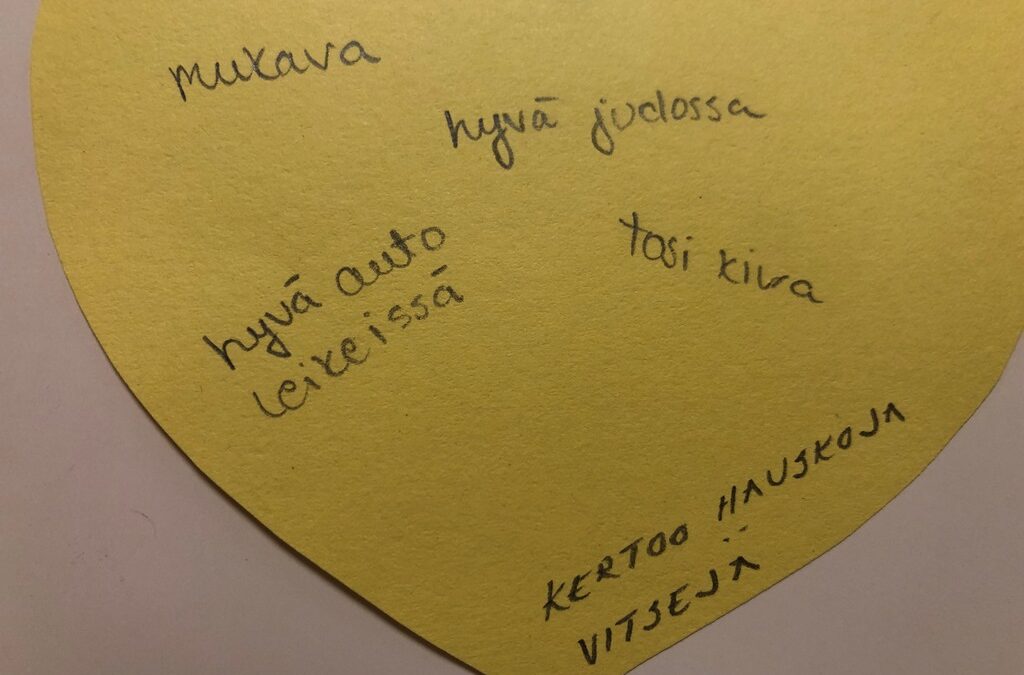 mukava
hyvä judossa
hyvä auto
leikeissä
tosi kiva
KERTOO HAUSKOJA
VITSEJÄ